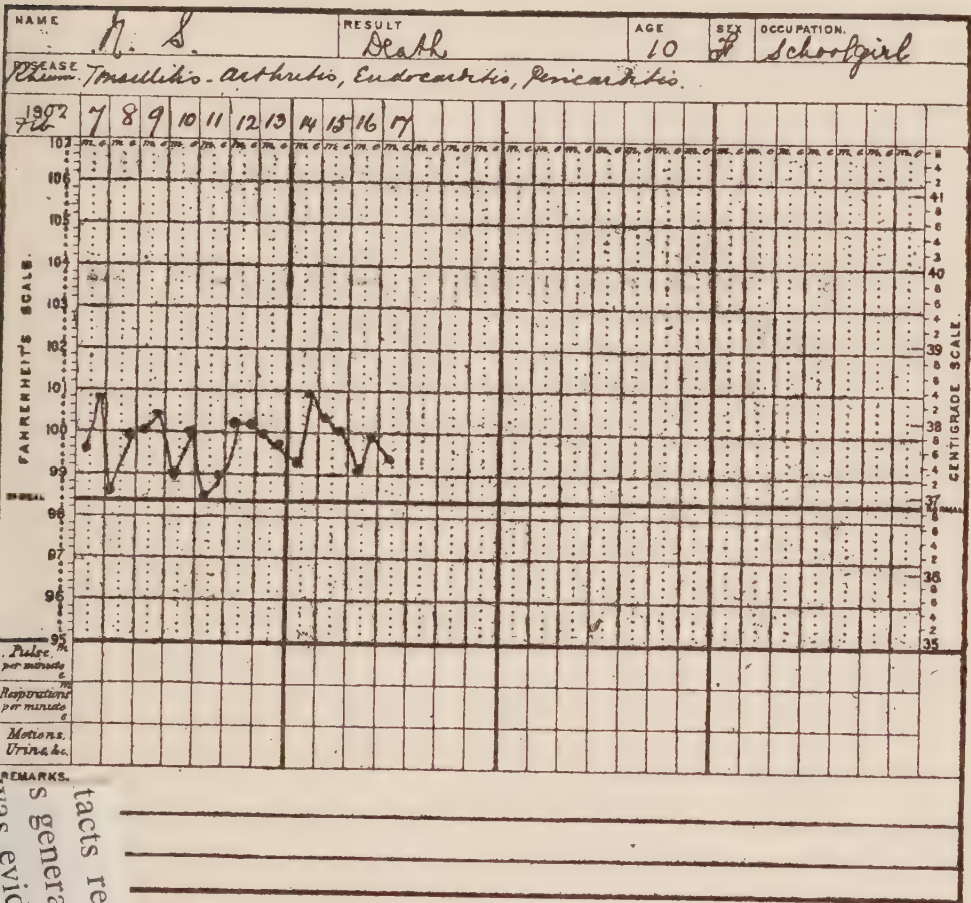 NAME N. S. RESULT Death AGE 10 SEX F OCCUPATION. Schoolgirl
DISEASE Rheum. Tonsillitis - arthritis, Endocarditis, Pericarditis.
1902 Feb 7 8 9 10 11 12 13 14 15 16 17
m. e m. e m. e m. e m. e m. e m. e m. e m. e m. e m. e m. e m. e m. e m. e m. e m. e m. e m. e m. e m. e m. e m. e m. e m. e m. e m. e m. e m. e
FAHRENHEIT'S SCALE.
107
106
105
104
103
102
101
100
99
98
97
96
95
CENTIGRADE SCALE.
41
40
39
38
37
36
35
Pulse per minute m e
Respirations per minute m e
Motions, Urine, &c.
REMARKS.
tacts re
s genera
was evid